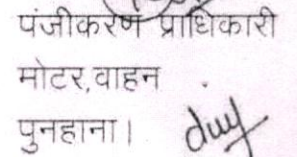 पंजीकरण प्राधिकारी
मोटर,वाहन
पुनहाना।